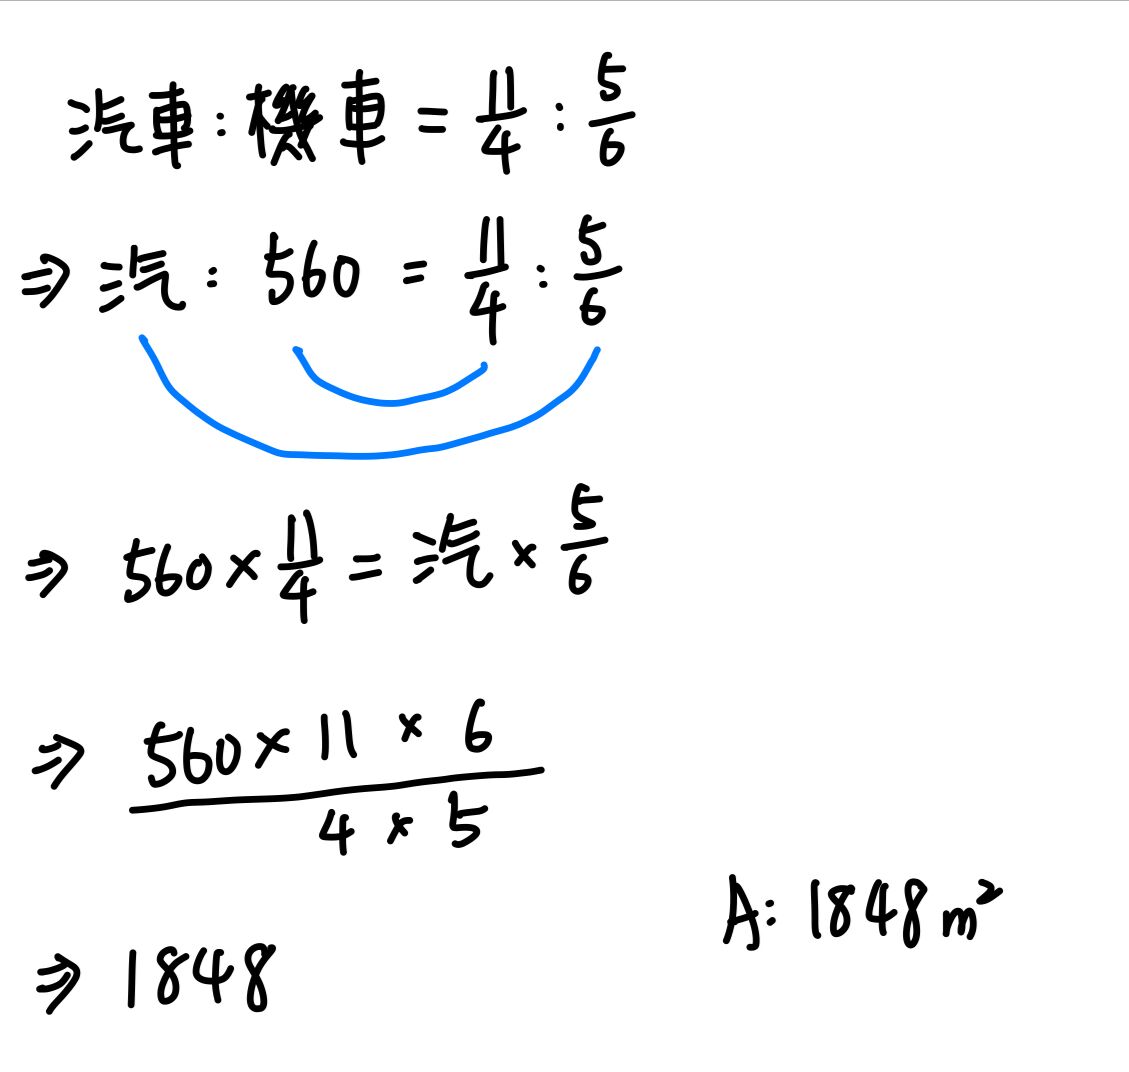 汽車:機車 = 11/4 : 5/6
⇒ 汽 : 560 = 11/4 : 5/6
⇒ 560 × 11/4 = 汽 × 5/6
⇒ 560 × 11 × 6 / 4 × 5
A: 1848 m²
⇒ 1848